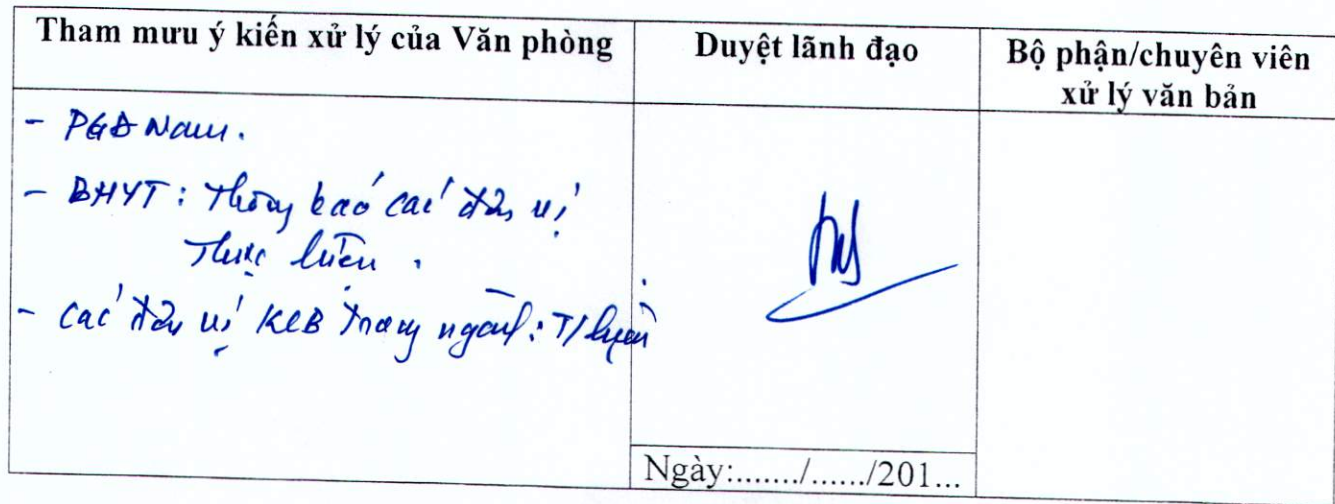 Tham mưu ý kiến xử lý của Văn phòng
Duyệt lãnh đạo
Bộ phận/chuyên viên
xử lý văn bản
- PGĐ Nam.
- BHYT: Thông báo các đơn vị
Thực hiện.
- Các đơn vị KCB trong ngành: T/hiện
Ngày:......./....../201...